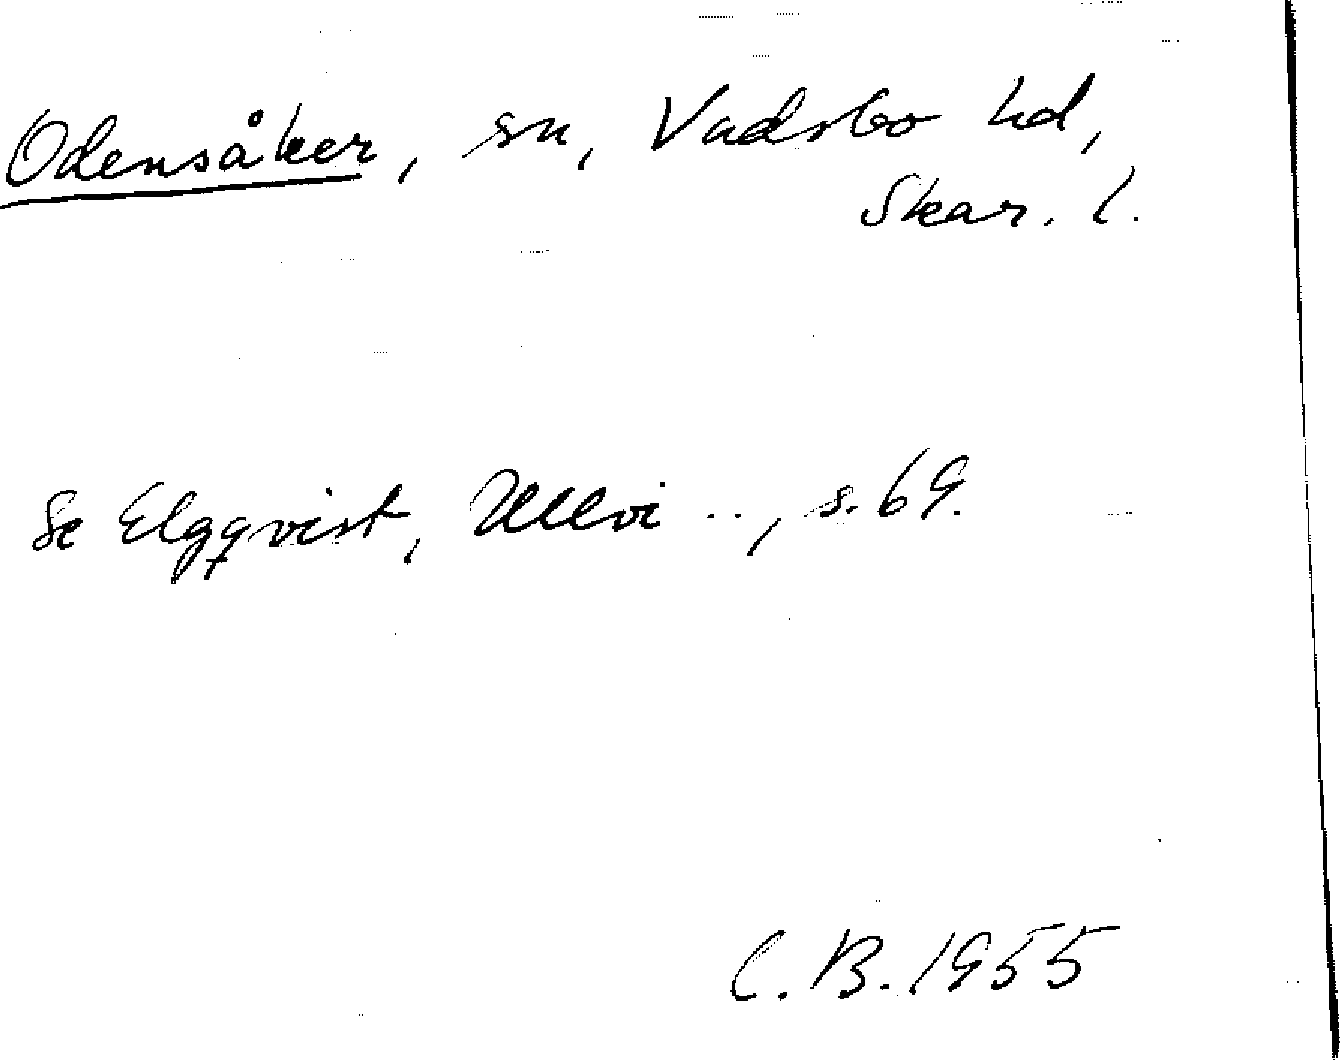 Odensåker, sn, Vadsbo hd,
Skar. l.
Se Elgqvist, Ullvi .., s. 69.
C. B. 1955